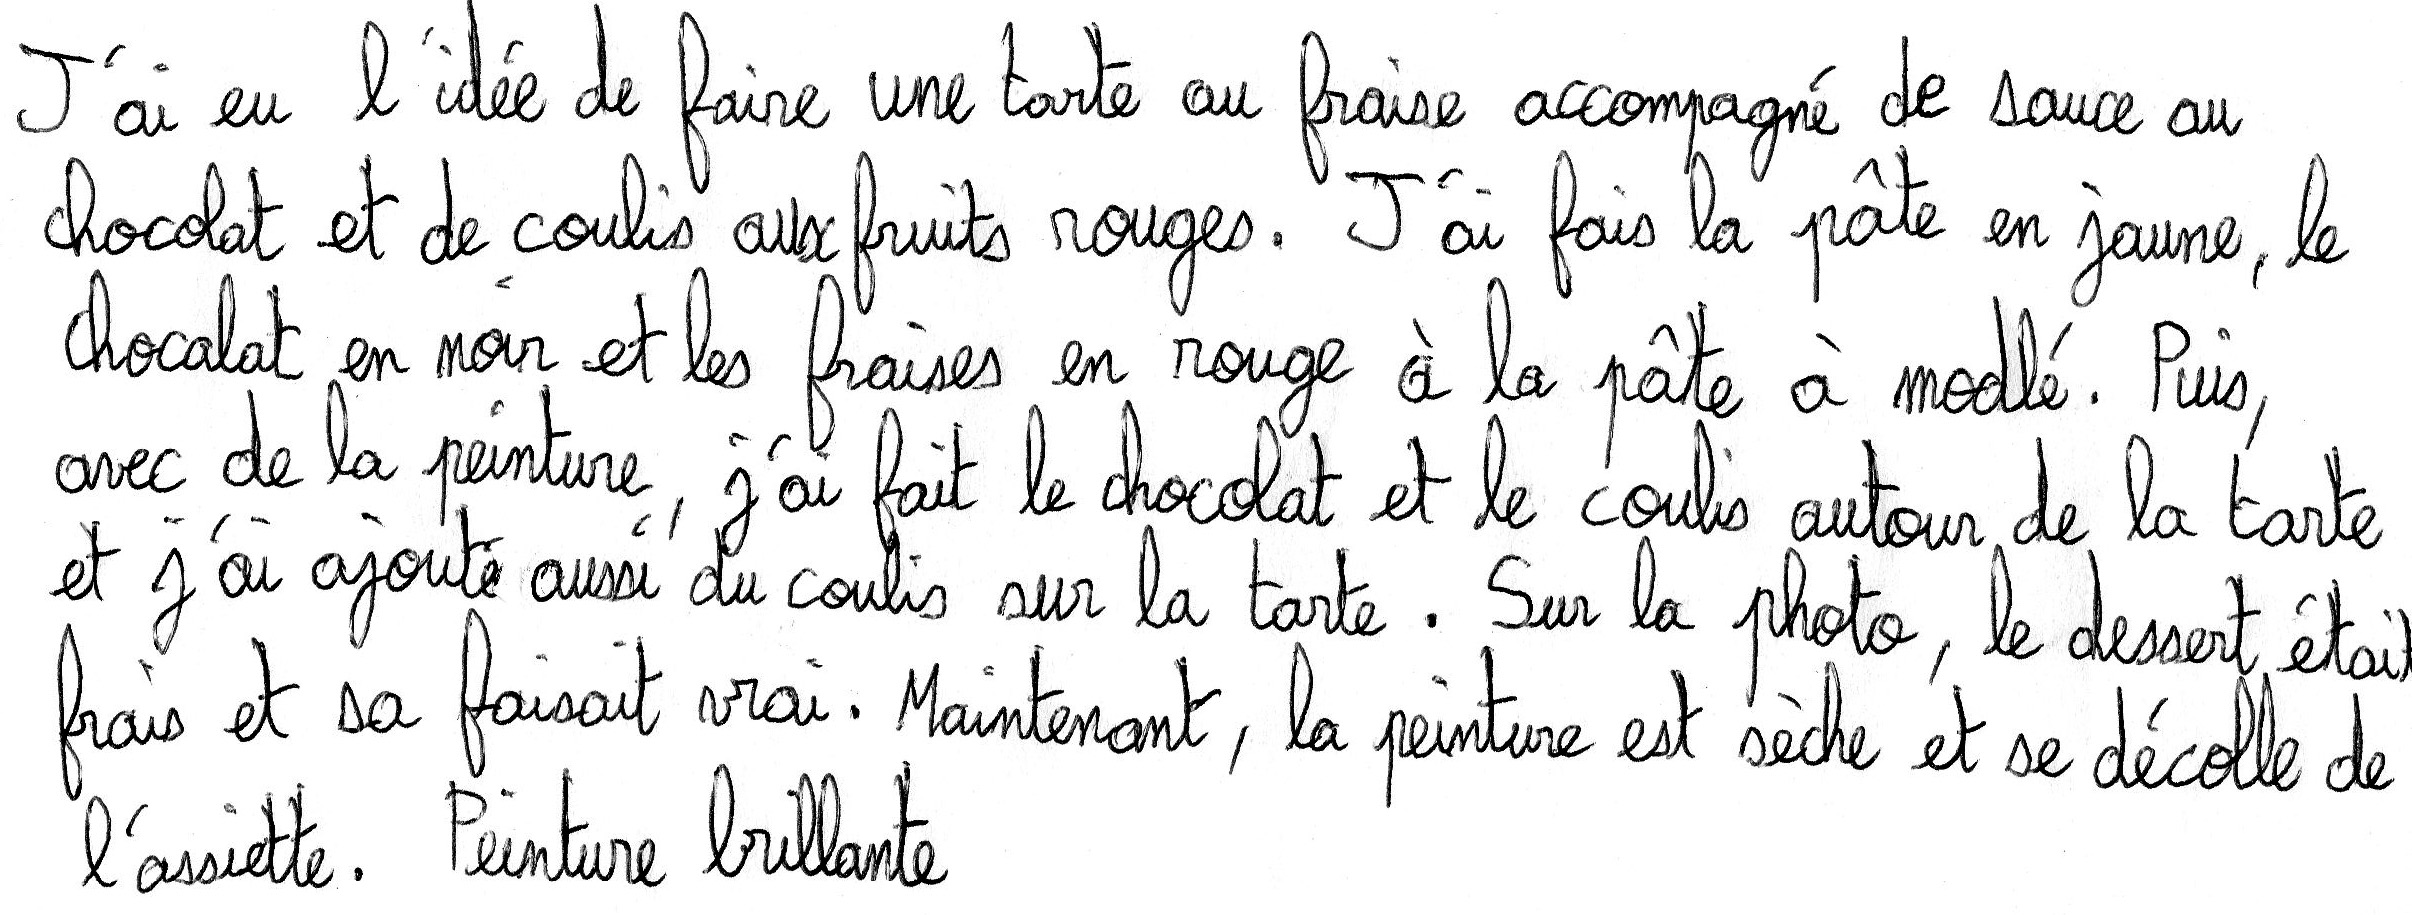 J'ai eu l'idée de faire une tarte au fraise accompagné de sauce au
chocolat et de coulis aux fruits rouges. J'ai fais la pâte en jaune, le
chocalat en noir et les fraises en rouge à la pâte à modlé. Puis,
avec de la peinture, j'ai fait le chocolat et le coulis autour de la tarte
et j'ai ajouté aussi du coulis sur la tarte. Sur la photo, le dessert était
frais et sa faisait vrai. Maintenant, la peinture est sèche et se décolle de
l'assiette. Peinture brillante